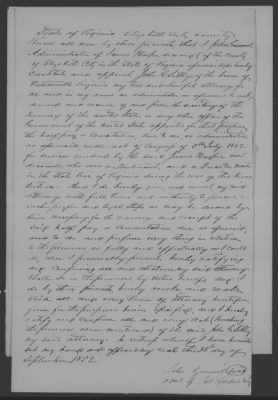 State of Virginia Elizabeth City county
Know all men by these presents that I John
Administrator of James of the county
of Elizabeth City in the State of Virginia aforesaid do hereby
Constitute and appoint John of the Town of
Portsmouth Virginia my true and lawful attorney for
me and in my name as administrator as aforesaid to ask
demand and receive of and from the Secretary of the
Treasury of the United States or any other officer of the
Government of the United States
the half pay or Commutation due to me as administrator
as aforesaid under act of Congress of 5th July 1832
for services rendered by the said James
deceased, who was
in the State Line of Virginia during the war of the Revo
lution. And I do hereby give and unto my said
attorney with full power and authority to
such and legal as may be used by
him for the recovery and receipt of the
said half pay or Commutation due as aforesaid,
and to do and perform every thing in relation
to the premises as fully and effectually as I could
do, were I personally present, hereby ratifying
and Confirming all and whatsoever said attorney
shall do in the premises by virtue hereof. And I
do by these presents hereby revoke and make
void all and every Power of attorney heretofore
given for the purpose herein specified, and I hereby
ratify and confirm all and every act (touching
the premises herein mentioned) of the said John
my said attorney. In witness whereof I have hereunto
set my hand and affixed my seal this 28 day of
September 1832
John (Seal)
adm. of Jas